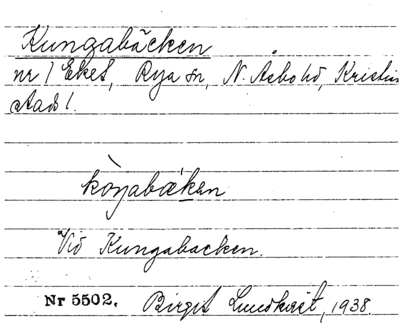 Kungabäcken
nr 1 Eket, Rya sn, N. Åsbo hd, Kristian
stads l.
kòŋabækən
Vid Kungabacken.
Nr 5502. Birgit Lundkvist, 1938.